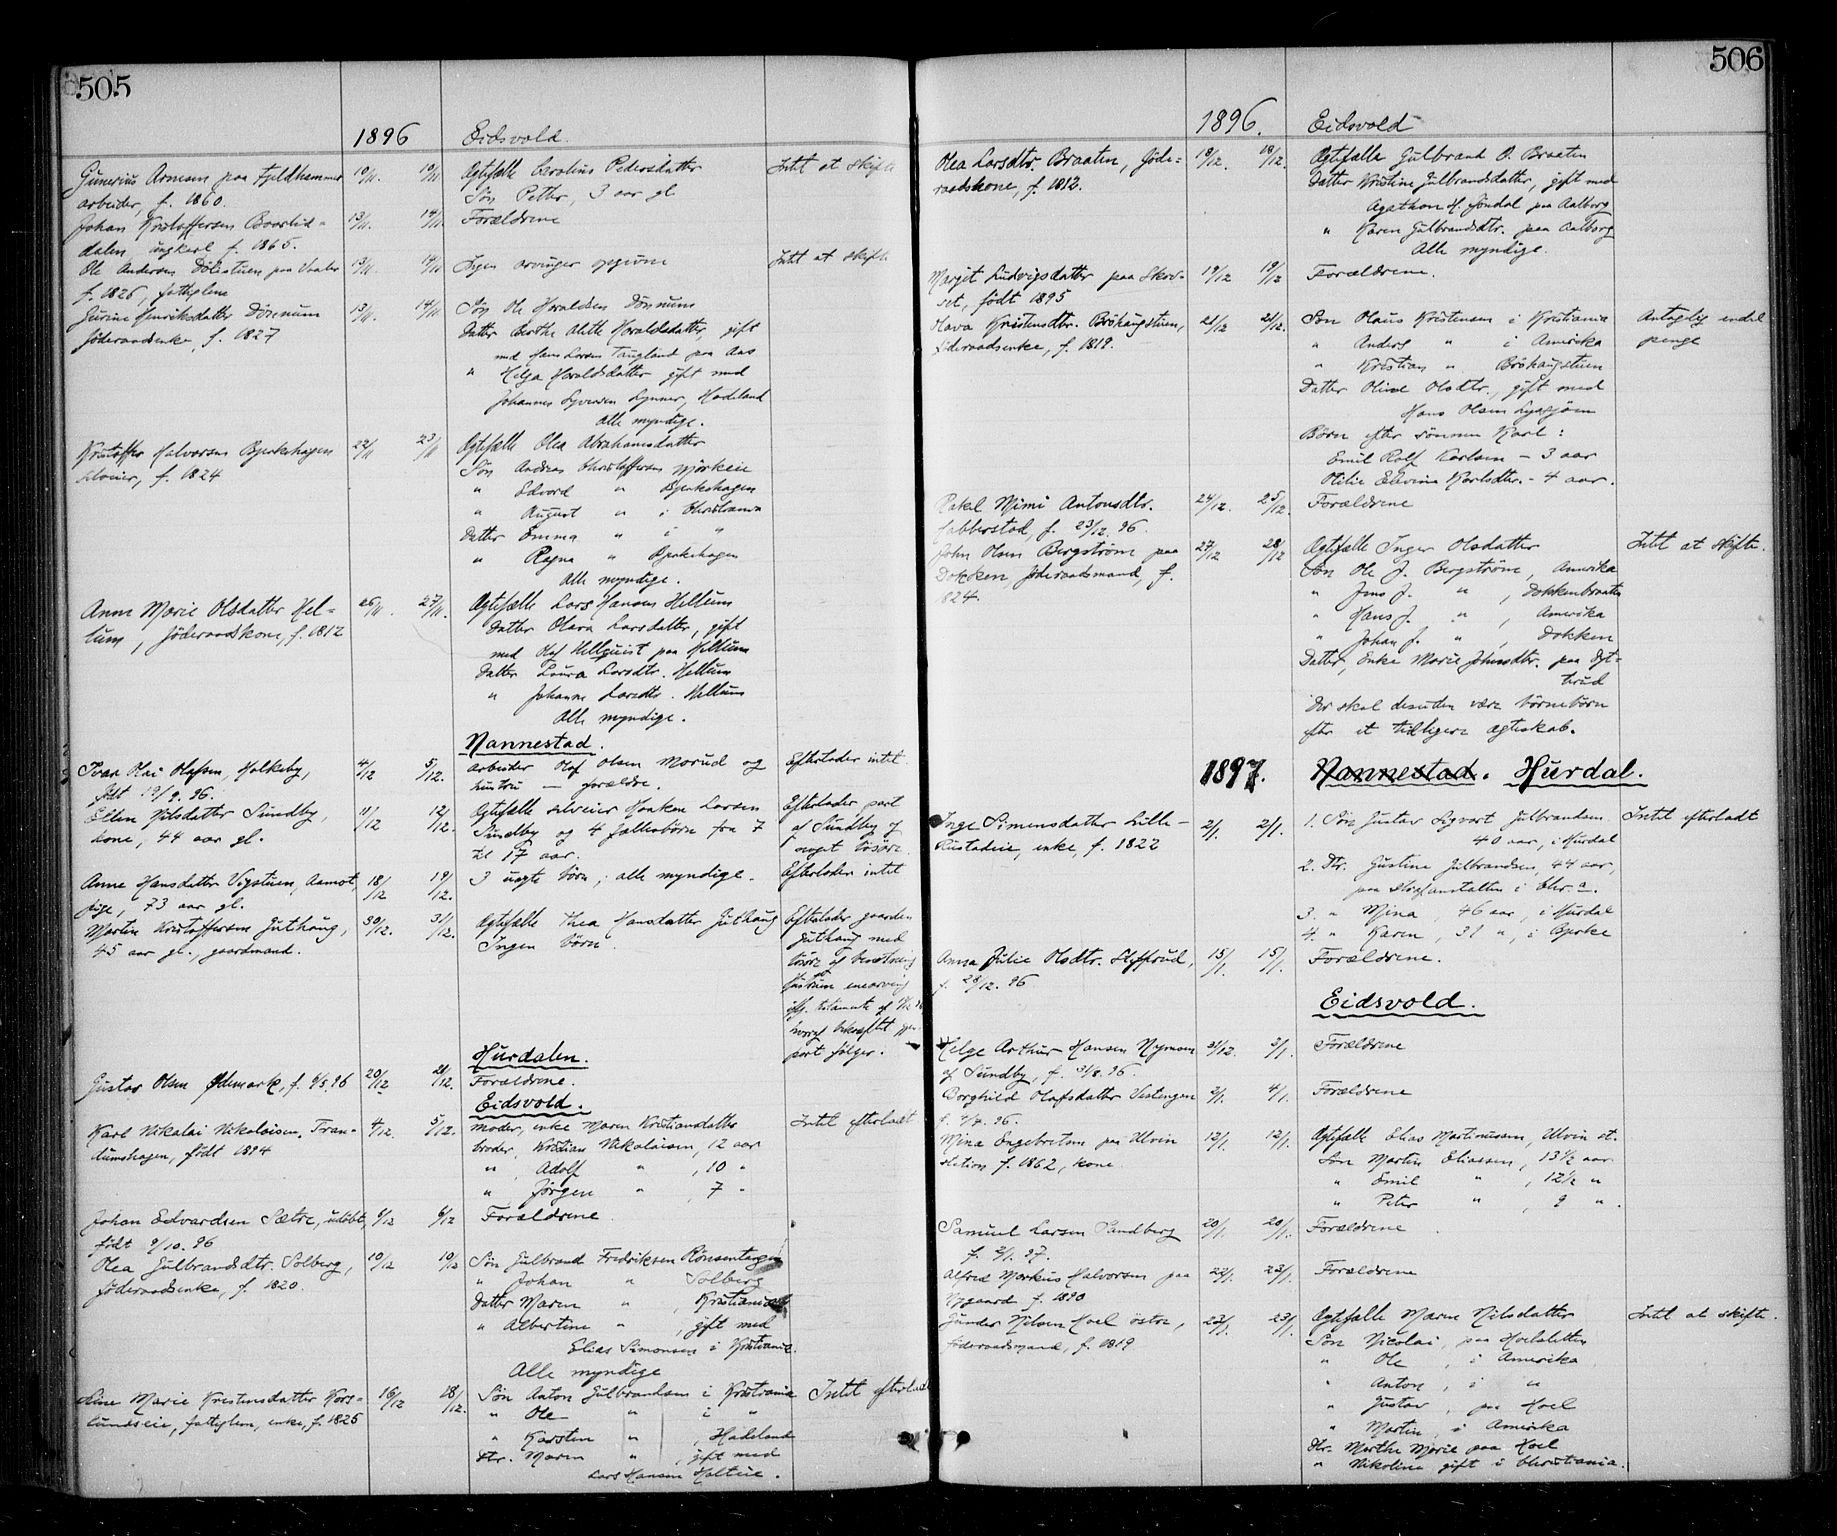 505
1896 Eidsvold.
Gunerius Arnesen paa Fjeldhammer 10/11. 10/11 Ægtefælle Carolius Pedersdatter Intet at skifte
arbeider, f. 1860. Søn Petter, 3 aar gl
Johan Kristoffersen 13/11. 14/11. Forældrene
dalen ungkarl f. 1865.
Ole Andersen Dølistuen paa 13/11. 14/11 Ingen arvinger opgivne Intet at skifte
f. 1826, fattiglem
Gurine Henriksdatter Dønnum 13/11. 14/11. Søn Ole Haraldsen Dønnum
føderaadsenke, f. 1827 Datter Berthe Alette Haraldsdatter, gift
med Hans Larsen Taugland paa Aas
" Helga Haraldsdatter gift med
Johannes Syversen Lynner, Hadeland
alle myndige.
Kristoffer Halvorsen Bjerkehagen 22/11 23/11 Ægtefælle Olea Abrahamsdatter
f. 1824 Søn Andreas Christoffersen Bjørkeie
" Edvard " Bjerkehagen
" August " i Christiania
Datter Emma " i "
" Ragna " Bjerkehagen
Alle myndige.
Anne Marie Olsdatter Hel- 26/11. 27/11. Ægtefælle Lars Hansen Hellum
lum, føderaadskone, f. 1812 Datter Olava Larsdatter, gift
med Olaf Hellquist paa Hellum
Datter Laura Larsdtr. Hellum
" Johanne Larsdtr. Hellum
Alle myndige.
Nannestad.
Ivar Olai Olafsen, Holkeby, 4/12 5/12. arbeider Olaf Olsen Morud og Efterlader intet
født 19/9. 96. hustru — forældre.
Ellen Nilsdatter Sundby, 11/12 12/12. Ægtefælle selveier Haaken Larsen Efterlader part
kone, 44 aar gl. Sundby og 4 fællesbørn fra 7 af Sundby og
til 17 aar. noget løsøre
Anne Hansdatter Vigstuen, Aamot, 18/12 19/12. 3 uegte børn; alle myndige. Efterlader intet
pige, 73 aar gl.
Martin Kristoffersen Juthaug, 30/12. 31/12. Ægtefælle Thea Hansdatter Juthaug Efterlader gaarden
45 aar gl., gaardmand. Ingen børn. Juthaug med
løsøre og besætning
hustruen enearving
iflg. testamente af
hvoraf bekræftet gjen-
part følger.
Hurdalen.
Gustav Olsen Ødemark, f. 6/5. 96 20/12 20/12. Forældrene.
Eidsvold.
Karl Nikolai Nikolaisen, Tran- 4/12. 5/12. moder, enke Maren Kristiansdatter Intet efterladt
dumshagen, født 1894 broder, Kristian Nikolaisen, 12 aar
" Adolf " , 10 "
" Jørgen " , 7 "
Johan Edvardsen Sætre, udøbt, 6/12 6/12 Forældrene
født 9/10. 96
Olea Gulbrandsdtr. Solberg, 10/12 10/12 Søn Gulbrand Fredriksen Rønsentangen
føderaadsenke, f. 1820. " Johan " Solberg
Datter Maren " , Kristiania
" Albertine " , gift med
Elias Simonsen i Kristiania.
Alle myndige
Anne Marie Kristensdatter Kors- 16/12 18/12. Søn Anton Gulbrandsen i Kristiania Intet efterladt
lundseie, fattiglem, enke, f. 1825 " Ole " i "
" Karsten " , Hadeland
Dtr. Maren " , gift med
Lars Hansen Holteie.
506
1896. Eidsvold
Olea Larsdtr. Braaten, føde- 18/12. 18/12. Ægtefælle Gulbrand O. Braaten
raadskone, f. 1812. Datter Kristine Gulbrandsdatter, gift med
Agathon H. Søndal paa Aalborg
" Karen Gulbrandsdtr. paa Aalborg
Alle myndige.
Margit Ludvigsdatter paa Skov- 19/12 19/12 Forældrene.
set, født 1895
Hava Kristensdtr. Brøhaugstuen, 21/12 21/12. Søn Olaus Kristensen i Kristiania Antagelig endel
føderaadsenke, f. 1819. " Anders " i Amerika penge
" Kristian " Brøhaugstuen
Datter Oline Olsdtr., gift med
Hans Olsen Lyssjøen
Børn efter sønnen Karl:
Emil Rolf Karlsen — 3 aar
Otilie Elevine Karlsdtr. - 4 aar.
Rakel Mimi Antonsdtr. 24/12. 25/12. Forældrene
Habberstad, f. 23/12. 96.
John Olsen Bergstrøm paa 27/12 28/12 Ægtefælle Inger Olsdatter Intet at skifte.
Dokken føderaadsmand, f. Søn Ole J. Bergstrøm, Amerika
1824. " Jens J. " , Dokkenbraaten
" Hans J. " , Amerika
" Johan J. " , Dokken
Datter, Enke Marie Johnsdtr. paa Dyt-
terud
Der skal desuden være børnebørn
efter et tidligere ægteskab.
1897. Nannestad. Hurdal.
Inge Simensdatter Lille- 2/1. 2/1. 1. Søn Gustav Sigvart Gulbrandsen Intet efterladt
Rustadeie, enke, f. 1822 40 aar, i Hurdal
2. Dtr. Gustine Gulbrandsen, 44 aar,
paa Slagfanstalten i Chr.a.
3. " Mina 46 aar, i Hurdal
4. " Karen, 31 ", i Gjerke
Anna Julie Olsdtr. Steffrud, 15/1. 15/1. Forældrene.
f. 28/12. 96
Eidsvold.
Helge Arthur Hansen Nyman 31/12. 3/1. Forældrene
af Sundby, f. 31/8. 96.
Borghild Olafsdatter Vestengen 3/1. 4/1. Forældrene
f. 4/4. 96.
Mina Engebretsen paa Ulvin 12/1. 12/1. Ægtefælle Elias Martinussen, Ulvin st.
station f. 1862, kone. Søn Martin Eliassen, 13 1/2 aar
" Emil " , 12 1/2 "
" Peter " , 9 ".
Samuel Larsen Sandberg 20/1. 20/1. Forældrene
f. 2/1. 97.
Alfred Markus Halvorsen paa 22/1. 23/1. Forældrene
Nygaard f. 1890
Gunder Nilsen Hoel østre, 23/1. 23/1. Ægtefælle Maren Nilsdatter Intet at skifte.
føderaadsmand, f. 1819 Søn Nicolai, paa Hoelsletten
" Ole , i Amerika
" Anton , i "
" Gustav , paa Hoel
" Martin, i Amerika
Dtr. Marthe Marie paa Hoel
" Nikoline gift i Christiania.